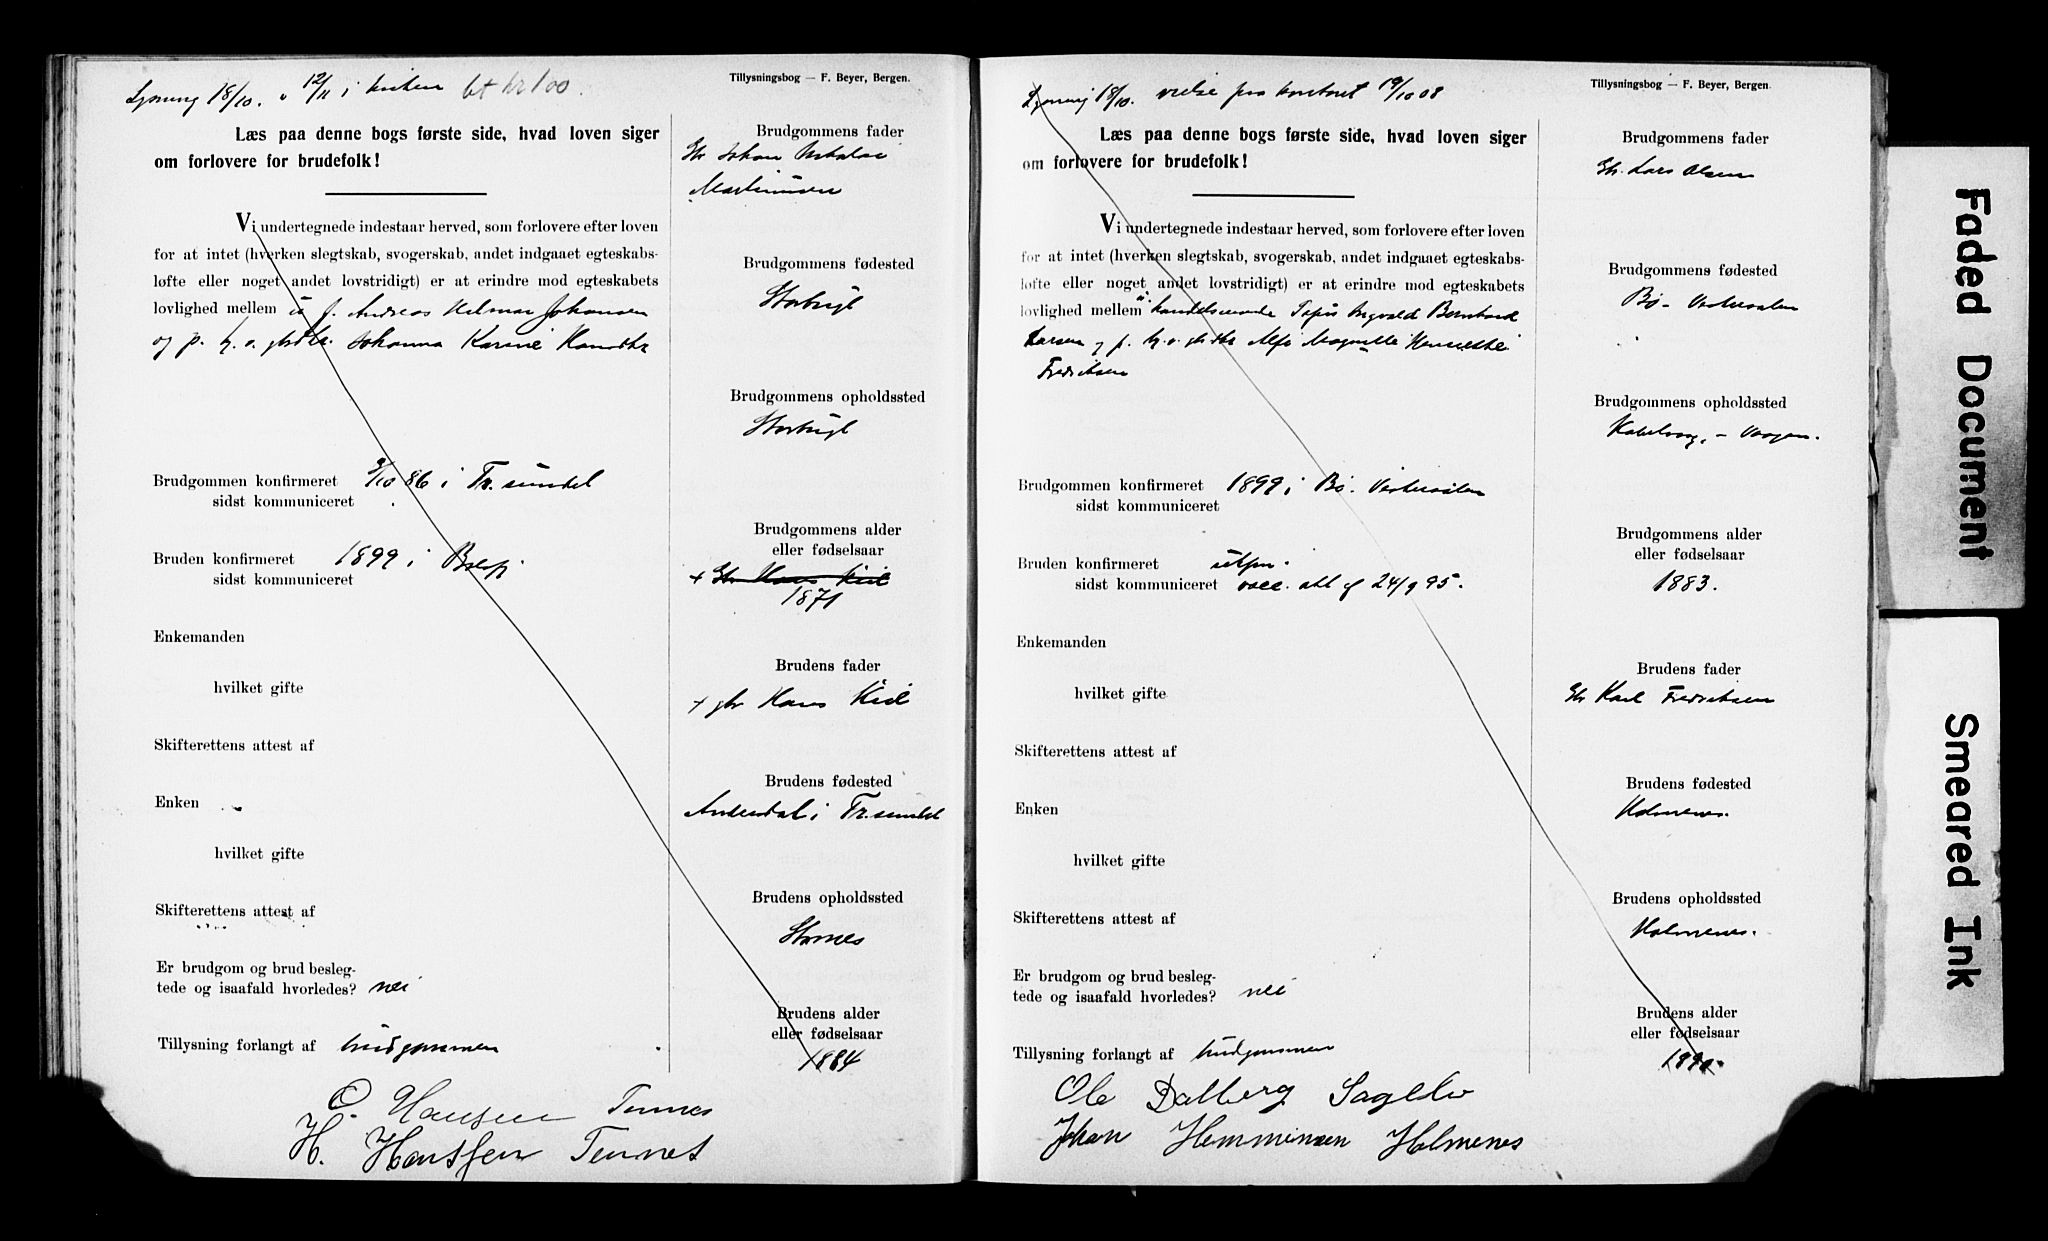 Lysning 18/10. 12/11 i kirken bet kr 1.00.
Tillysningsbog — F. Beyer, Bergen.
Læs paa denne bogs første side, hvad loven siger
om forlovere for brudefolk!
Vi undertegnede indestaar herved, som forlovere efter loven
for at intet (hverken slegtskab, svogerskab, andet indgaaet egteskabs-
løfte eller noget andet lovstridigt) er at erindre mod egteskabets
lovlighed mellem u f. Andreas Hilmar Johansen
og p. h. v. gbdtr. Johanna Karine Hansdtr
Brudgommen konfirmeret 3/10 86 i Tr.sundet
sidst kommuniceret
Bruden konfirmeret 1899 i
sidst kommuniceret
Enkemanden
hvilket gifte
Skifterettens attest af
Enken
hvilket gifte
Skifterettens attest af
Er brudgom og brud besleg-
tede og isaafald hvorledes? nei
Tillysning forlangt af brudgommen
Brudgommens fader
Gbr Johan
Martinussen
Brudgommens fødested
Brudgommens opholdssted
Brudgommens alder
eller fødselsaar
+ Gbr Hans Kiil
1871
Brudens fader
+ gbr Hans Kiil
Brudens fødested
i Tr.sundet
Brudens opholdssted
Stornes
Brudens alder
eller fødselsaar
1884
O. Hansen Tennes
H. Hantsen Tennes
Lysning 18/10. vielse fra kontoret 19/10 08
Tillysningsbog — F. Beyer, Bergen.
Læs paa denne bogs første side, hvad loven siger
om forlovere for brudefolk!
Vi undertegnede indestaar herved, som forlovere efter loven
for at intet (hverken slegtskab, svogerskab, andet indgaaet egteskabs-
løfte eller noget andet lovstridigt) er at erindre mod egteskabets
lovlighed mellem u. handelsreisende Ingvald Bernhard
Larsen og p. h. v. gbdtr Magnelle Henriette
Fredriksen
Brudgommen konfirmeret 1899 i Bø. Vesteraalen
sidst kommuniceret
Bruden konfirmeret
sidst kommuniceret vacc. att af 24/9 95.
Enkemanden
hvilket gifte
Skifterettens attest af
Enken
hvilket gifte
Skifterettens attest af
Er brudgom og brud besleg-
tede og isaafald hvorledes? nei
Tillysning forlangt af brudgommen
Brudgommens fader
Gbr. Lars Olsen
Brudgommens fødested
Bø - Vesteraalen
Brudgommens opholdssted
Kabelvaag, - Vaagan.
Brudgommens alder
eller fødselsaar
1883.
Brudens fader
Gbr Karl Fredriksen
Brudens fødested
Holmenes.
Brudens opholdssted
Holmenes.
Brudens alder
eller fødselsaar
1890.
Ole Dalberg Sagelv
Johan Hemminsen Holmenes
Faded Document
Smeared Ink